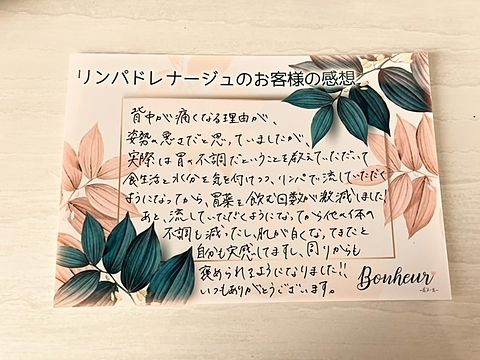 リンパドレナージュのお客様の感想
背中が痛くなる理由が、
姿勢の悪さだと思っていましたが、
実際は胃の不調だということを教えていただいて
食生活と水分を気を付けつつ、リンパで流していただく
ようになってから、胃薬を飲む回数が激減しました!
あと、流していただくようになってから他の体の
不調も減ったし、肌が白くなってきたと
自分も実感してますし、周りからも
褒められるようになりました!!
いつもありがとうございます。
Bonheur